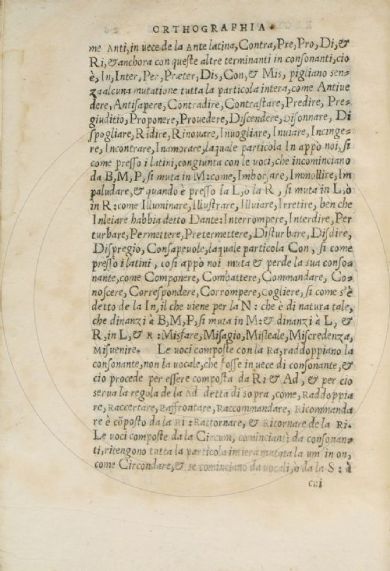 ORTHOGRAPHIA.
me Anti, in uece de la Ante latina, Contra, Pre, Pro, Di, &
Ri, & anchora con queste altre terminanti in consonanti, cio
è, In, Inter, Per, Præter, Dis, Con, & Mis, pigliano sen-
za alcuna mutatione tutta la particola intera, come Antiue
dere, Antisapere, Contradire, Contrastare, Predire, Pre
giuditio, Proponere, Prouedere, Discendere, Disonnare, Di
spogliare, Ridire, Rinouare, Inuogliare, Inuiare, Incinge-
re, Incontrare, Inamorare, la quale particola In appò noi, si
come presso i latini, congiunta con le uoci, che incominciano
da B, M, P, si muta in M: come, Imborsare, Immollire, Im
paludare, & quando è presso la L, ò la R, si muta in L, ò
in R: come Illuminare, Illustrare, Illuiare, Irretire, ben che
Inleiare habbia detto Dante: Interrompere, Interdire, Per
turbare, Permettere, Pretermettere, Disturbare, Disdire,
Dispregio, Consapeuole, la quale particola Con, si come
presso i latini, cosi appò noi muta & perde la sua conso
nante, come Componere, Combattere, Commandare, Co-
noscere, Correspondere, Corrompere, Cogliere, si come s'è
detto de la In, il che uiene per la N: che è di natura tale,
che dinanzi à B, M, P, si muta in M: & dinanzi à L, &
R, in L, & R: Misfare, Misagio, Misleale, Miscredenza,
Misuenire. Le uoci composte con la Ra, raddoppiano la
consonante, non la uocale, che fosse in uece di consonante, &
cio procede per essere composta da Ri & Ad, & per cio
serua la regola de la Ad detta di sopra, come, Raddoppia
re, Raccertare, Raffrontare, Raccommandare, Ricommanda
re è cõposto da la Ri: Rattornare, & Ritornare de la Ri.
Le uoci composte da la Circum, cominciati da consonan
ti, ritengono tutta la particola intiera mutata la um in on,
come Circondare, & se cominciano da uocali, ò da la S: à
cci